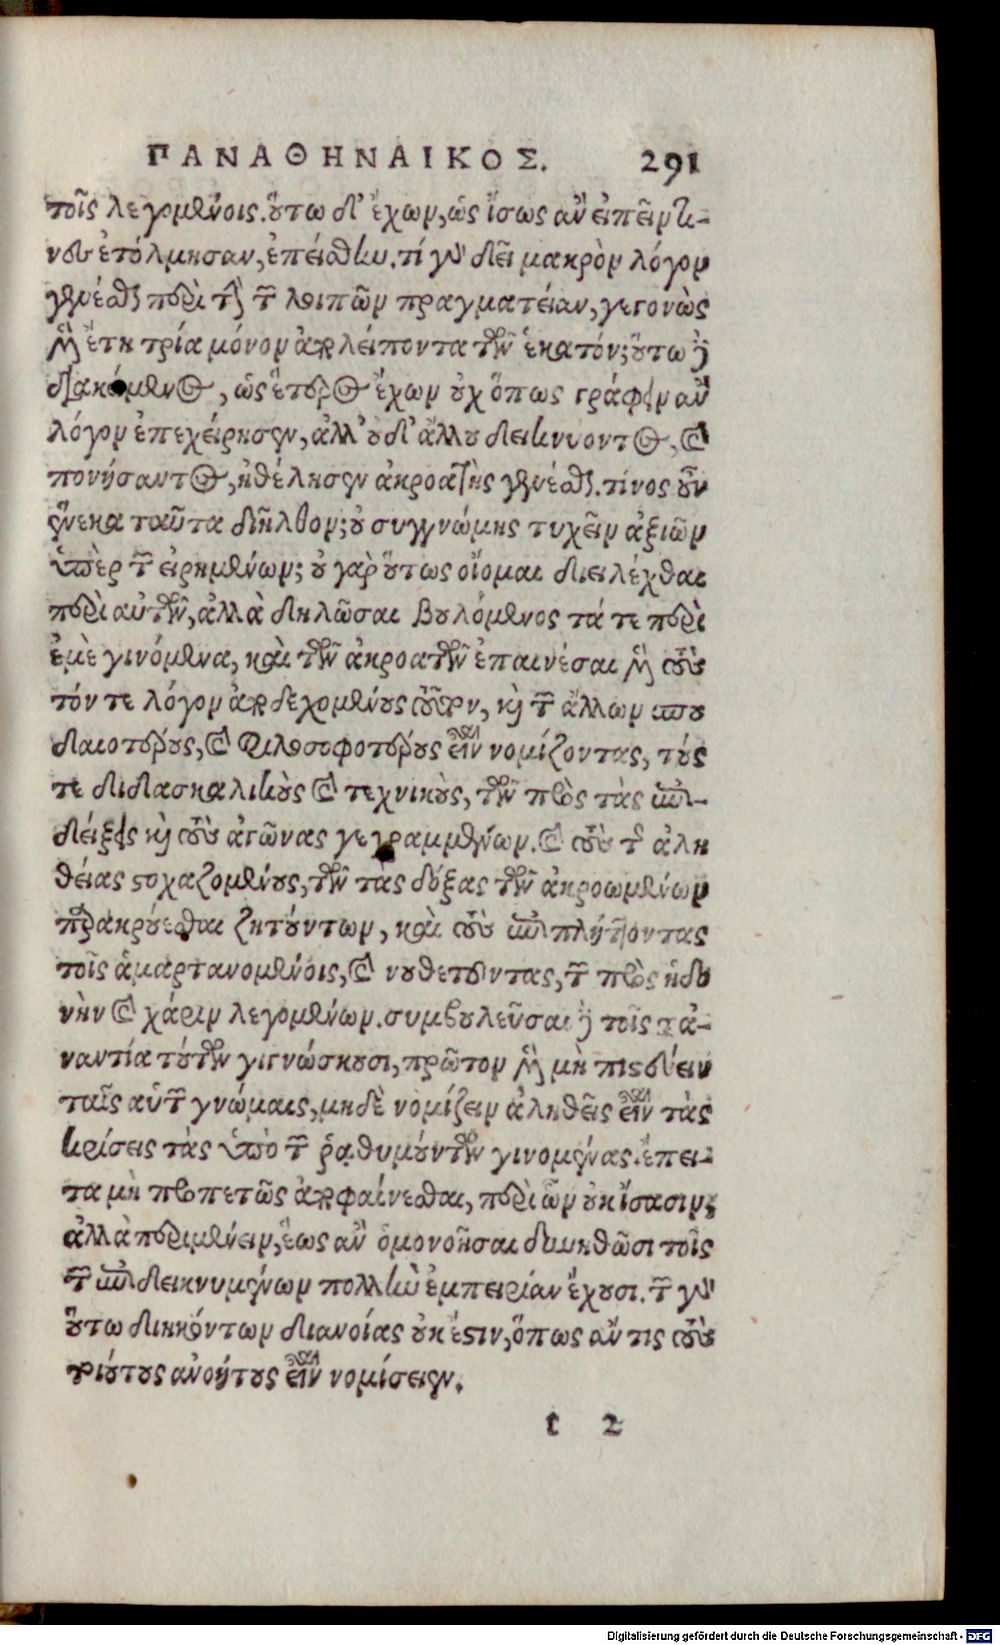 ΠΑΝΑΘΗΝΑΙΚΟΣ. 291
τοῖς λεγομένοις. οὕτω δ' ἔχων, ὡς ἴσως ἂν εἰπεῖν τι-
νες ἐτόλμησαν, ἐπείσθην. τί γὰρ δεῖ μακρὸν λόγον
γενέσθαι περὶ τὴν τῶν λοιπῶν πραγματείαν, γεγονὼς
μὲν ἔτη τρία μόνον ἀπολείποντα τῶν ἑκατόν; οὕτω δὲ
διακείμενος, ὡς ἕτερος ἔχων οὐχ ὅπως γράφειν ἂν
λόγον ἐπεχείρησεν, ἀλλ' οὐδ' ἄλλου δεικνύοντος, καὶ
πονήσαντος, ἠθέλησεν ἀκροατὴς γενέσθαι. τίνος οὖν
ἕνεκα ταῦτα διῆλθον; οὐ συγγνώμης τυχεῖν ἀξιῶν
ὑπὲρ τῶν εἰρημένων; οὐ γὰρ οὕτως οἴομαι διειλέχθαι
περὶ αὐτῶν, ἀλλὰ δηλῶσαι βουλόμενος τά τε περὶ
ἐμὲ γινόμενα, καὶ τῶν ἀκροατῶν ἐπαινέσαι μὲν τοὺς
τόν τε λόγον ἀποδεχομένους τοῦτον, καὶ τῶν ἄλλων σπου
δαιοτέρους, καὶ φιλοσοφοτέρους εἶναι νομίζοντας, τούς
τε διδασκαλικοὺς καὶ τεχνικοὺς, τῶν πρὸς τὰς ἐπι-
δείξεις καὶ τοὺς ἀγῶνας γεγραμμένων. καὶ τοὺς τῆς ἀλη
θείας στοχαζομένους, τῶν τὰς δόξας τῶν ἀκροωμένων
παρακρούεσθαι ζητούντων, καὶ τοὺς ἐπιπλήττοντας
τοῖς ἁμαρτανομένοις, καὶ νουθετοῦντας, τῶν πρὸς ἡδο
νὴν καὶ χάριν λεγομένων. συμβουλεῦσαι δὲ τοῖς τἀ-
ναντία τούτων γιγνώσκουσι, πρῶτον μὲν μὴ πιστεύειν
ταῖς αὑτῶν γνώμαις, μηδὲ νομίζειν ἀληθεῖς εἶναι τὰς
κρίσεις τὰς ὑπὸ τῶν ῥαθυμούντων γινομένας. ἔπει-
τα μὴ προπετῶς ἀποφαίνεσθαι, περὶ ὧν οὐκ ἴσασιν;
ἀλλὰ περιμένειν, ἕως ἂν ὁμονοῆσαι δυνηθῶσι τοῖς
τῶν ἐπιδεικνυμένων πολλὴν ἐμπειρίαν ἔχουσι. τῶν γὰρ
οὕτω διηκόντων διανοίας οὐκ ἔστιν, ὅπως ἄν τις τοὺς
τοιούτους ἀνοήτους εἶναι νομίσειεν.
t 2
Digitalisierung gefördert durch die Deutsche Forschungsgemeinschaft - DFG